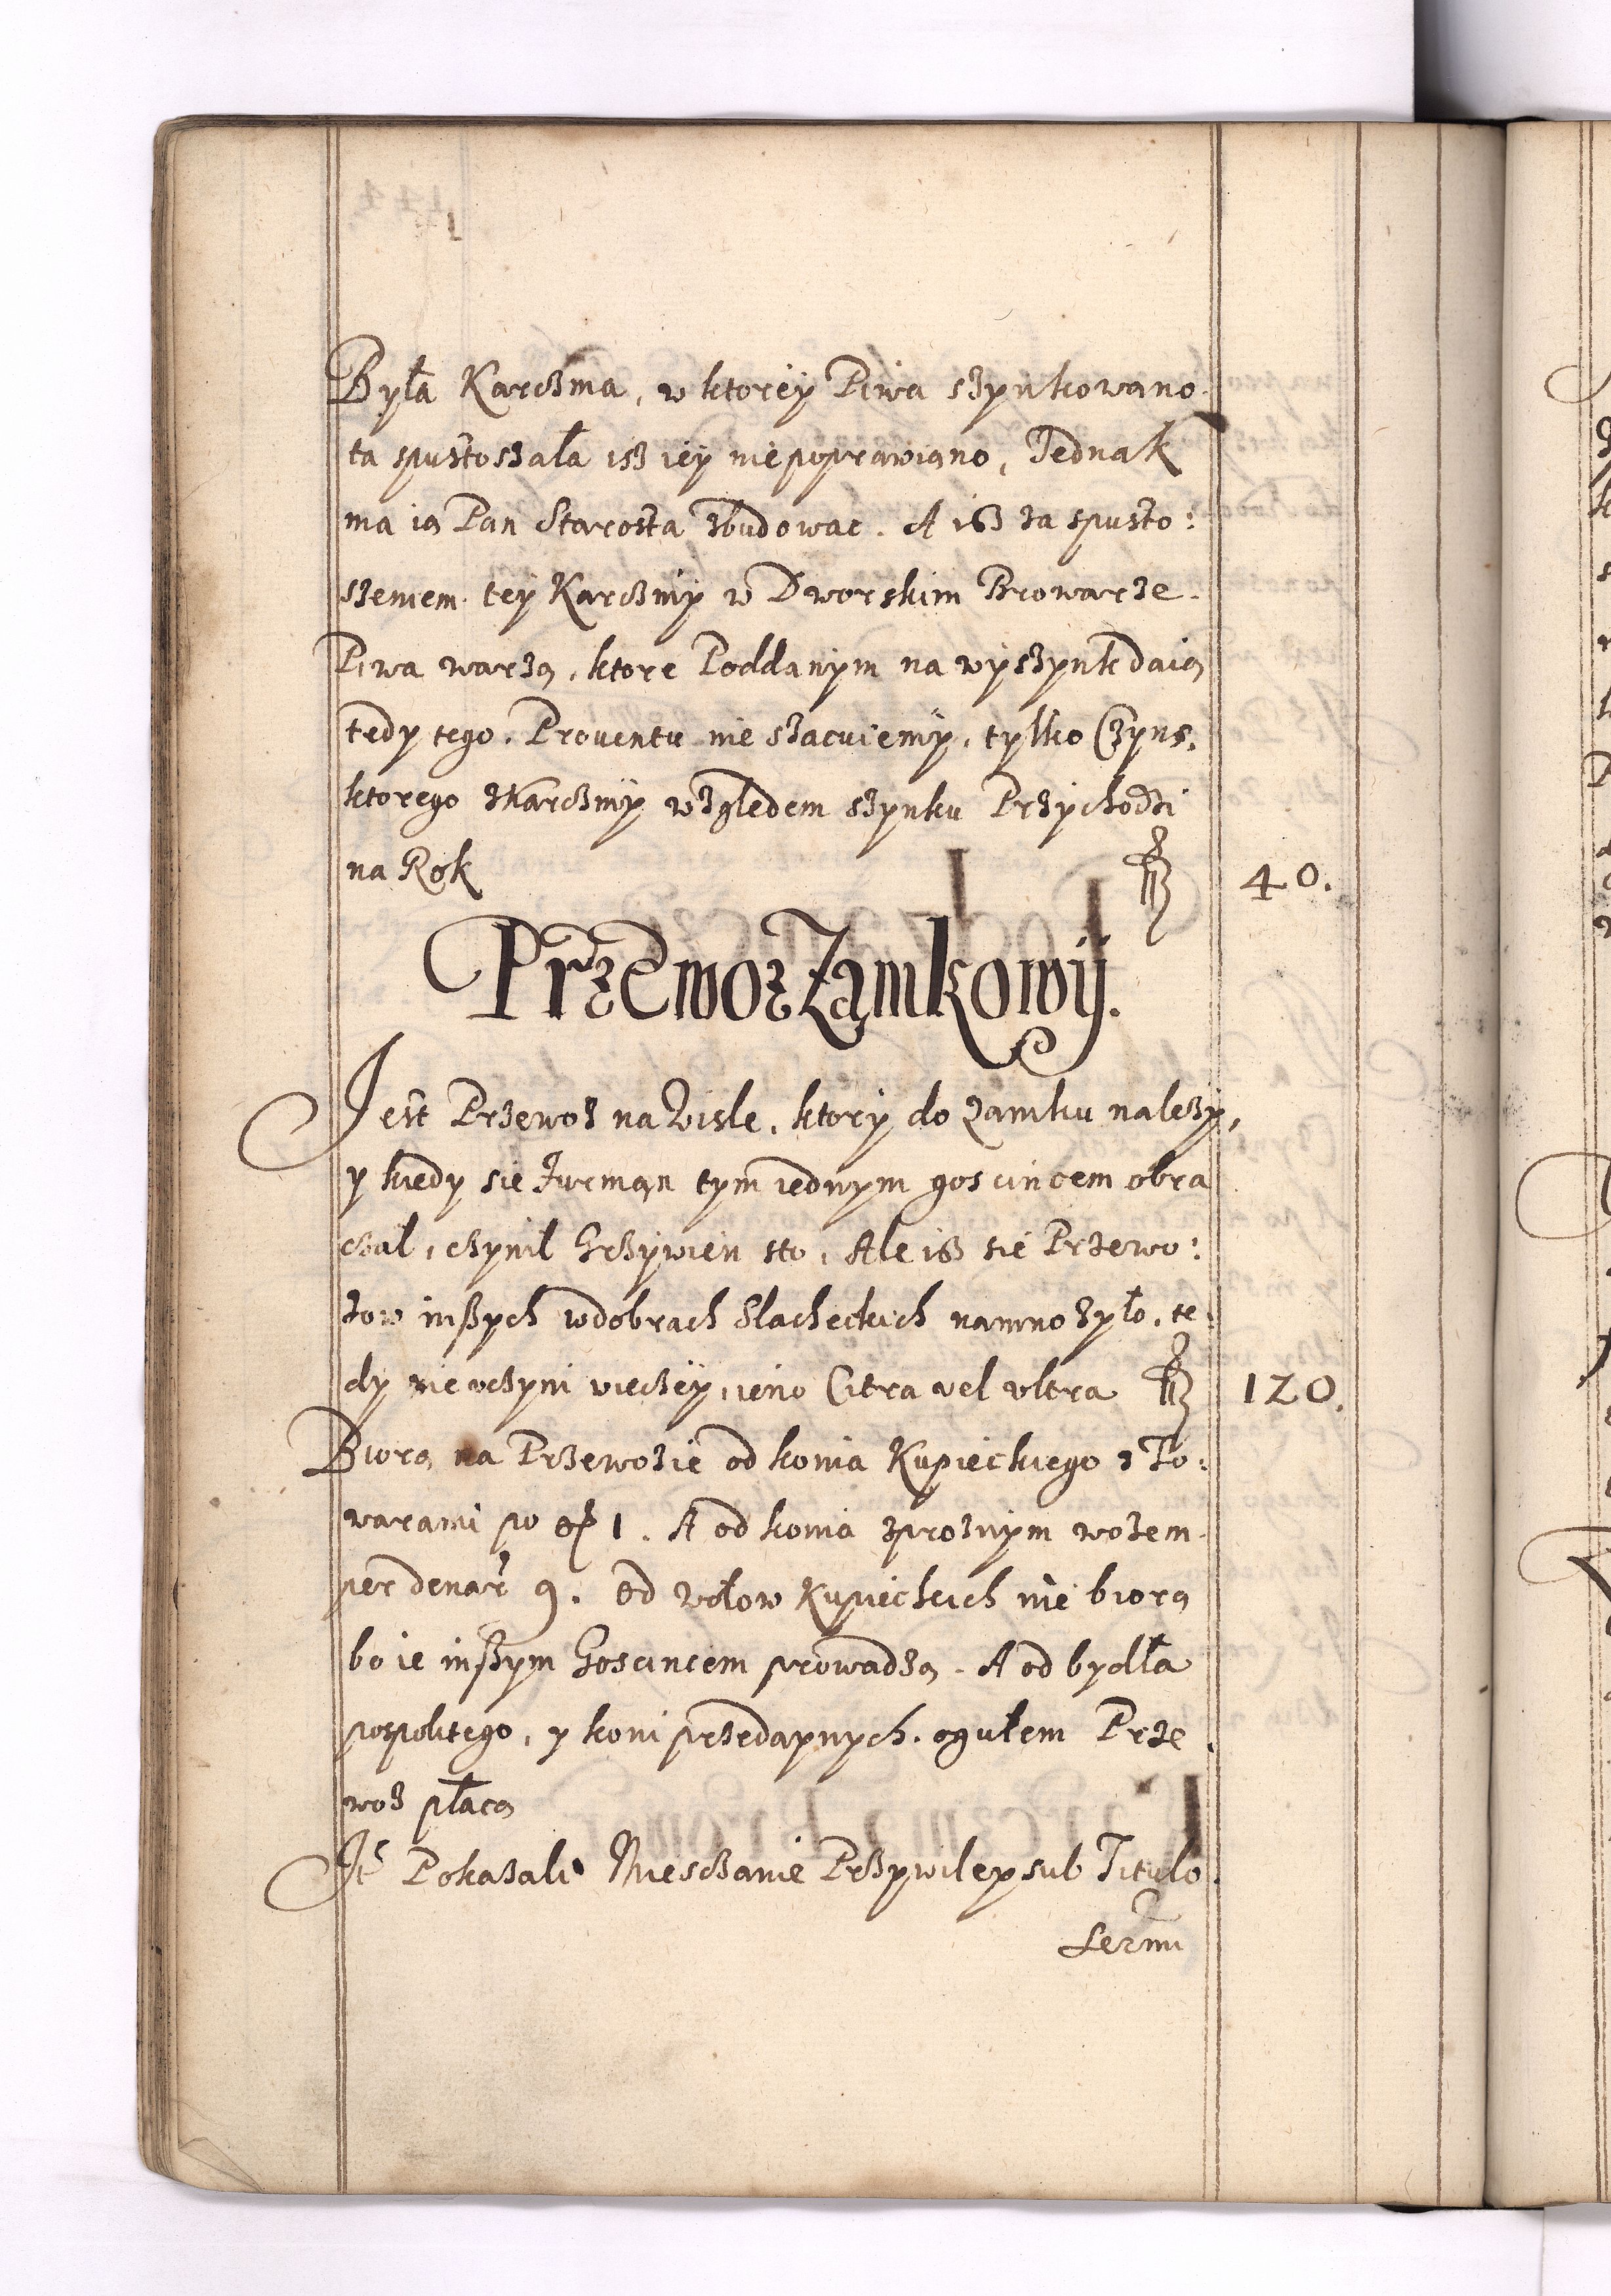 Była Karczma, w ktorey Piwa szynkowano
ta spustoszała isz iey nie poprawiano, Jednak
ma ią Pan Starosta zbudowac. A isz za spusto:
szeniem tey Karczmy w Dworskim Browarze.
Piwa warzą, ktore Poddanym na wyszynk daią
tedy tego. Prouentu nie szacuiemy, tylko Czyns.
ktorego zKarczmy względem szynku Przychodzi
na Rok 40.
Przewoz Zamkowy.
Jest Przewoz na Wisle, ktory do Zamku nalezy,
y kiedy sie Furman tym iednym goscincem obra
czal, czynil Grzywien sto, Ale isz sie Przewo:
zow inszych w dobrach Slacheckich namnozyło, te:
dy nie uczyni wieczey, ieno Citra vel vltra 120.
Biorą na Przewozie od konia Kupieckiego z To:
warami po gr 1. A od konia z proznym wozem
per denar 9. Od wołow Kupieckich nie biorą
bo ie inszym Goscincem prowadzą. A od bydła
pospolitego, y koni przedaynych. ogułem Prze
woz płacą
It Pokazali Miesczanie Przywiley sub Titulo